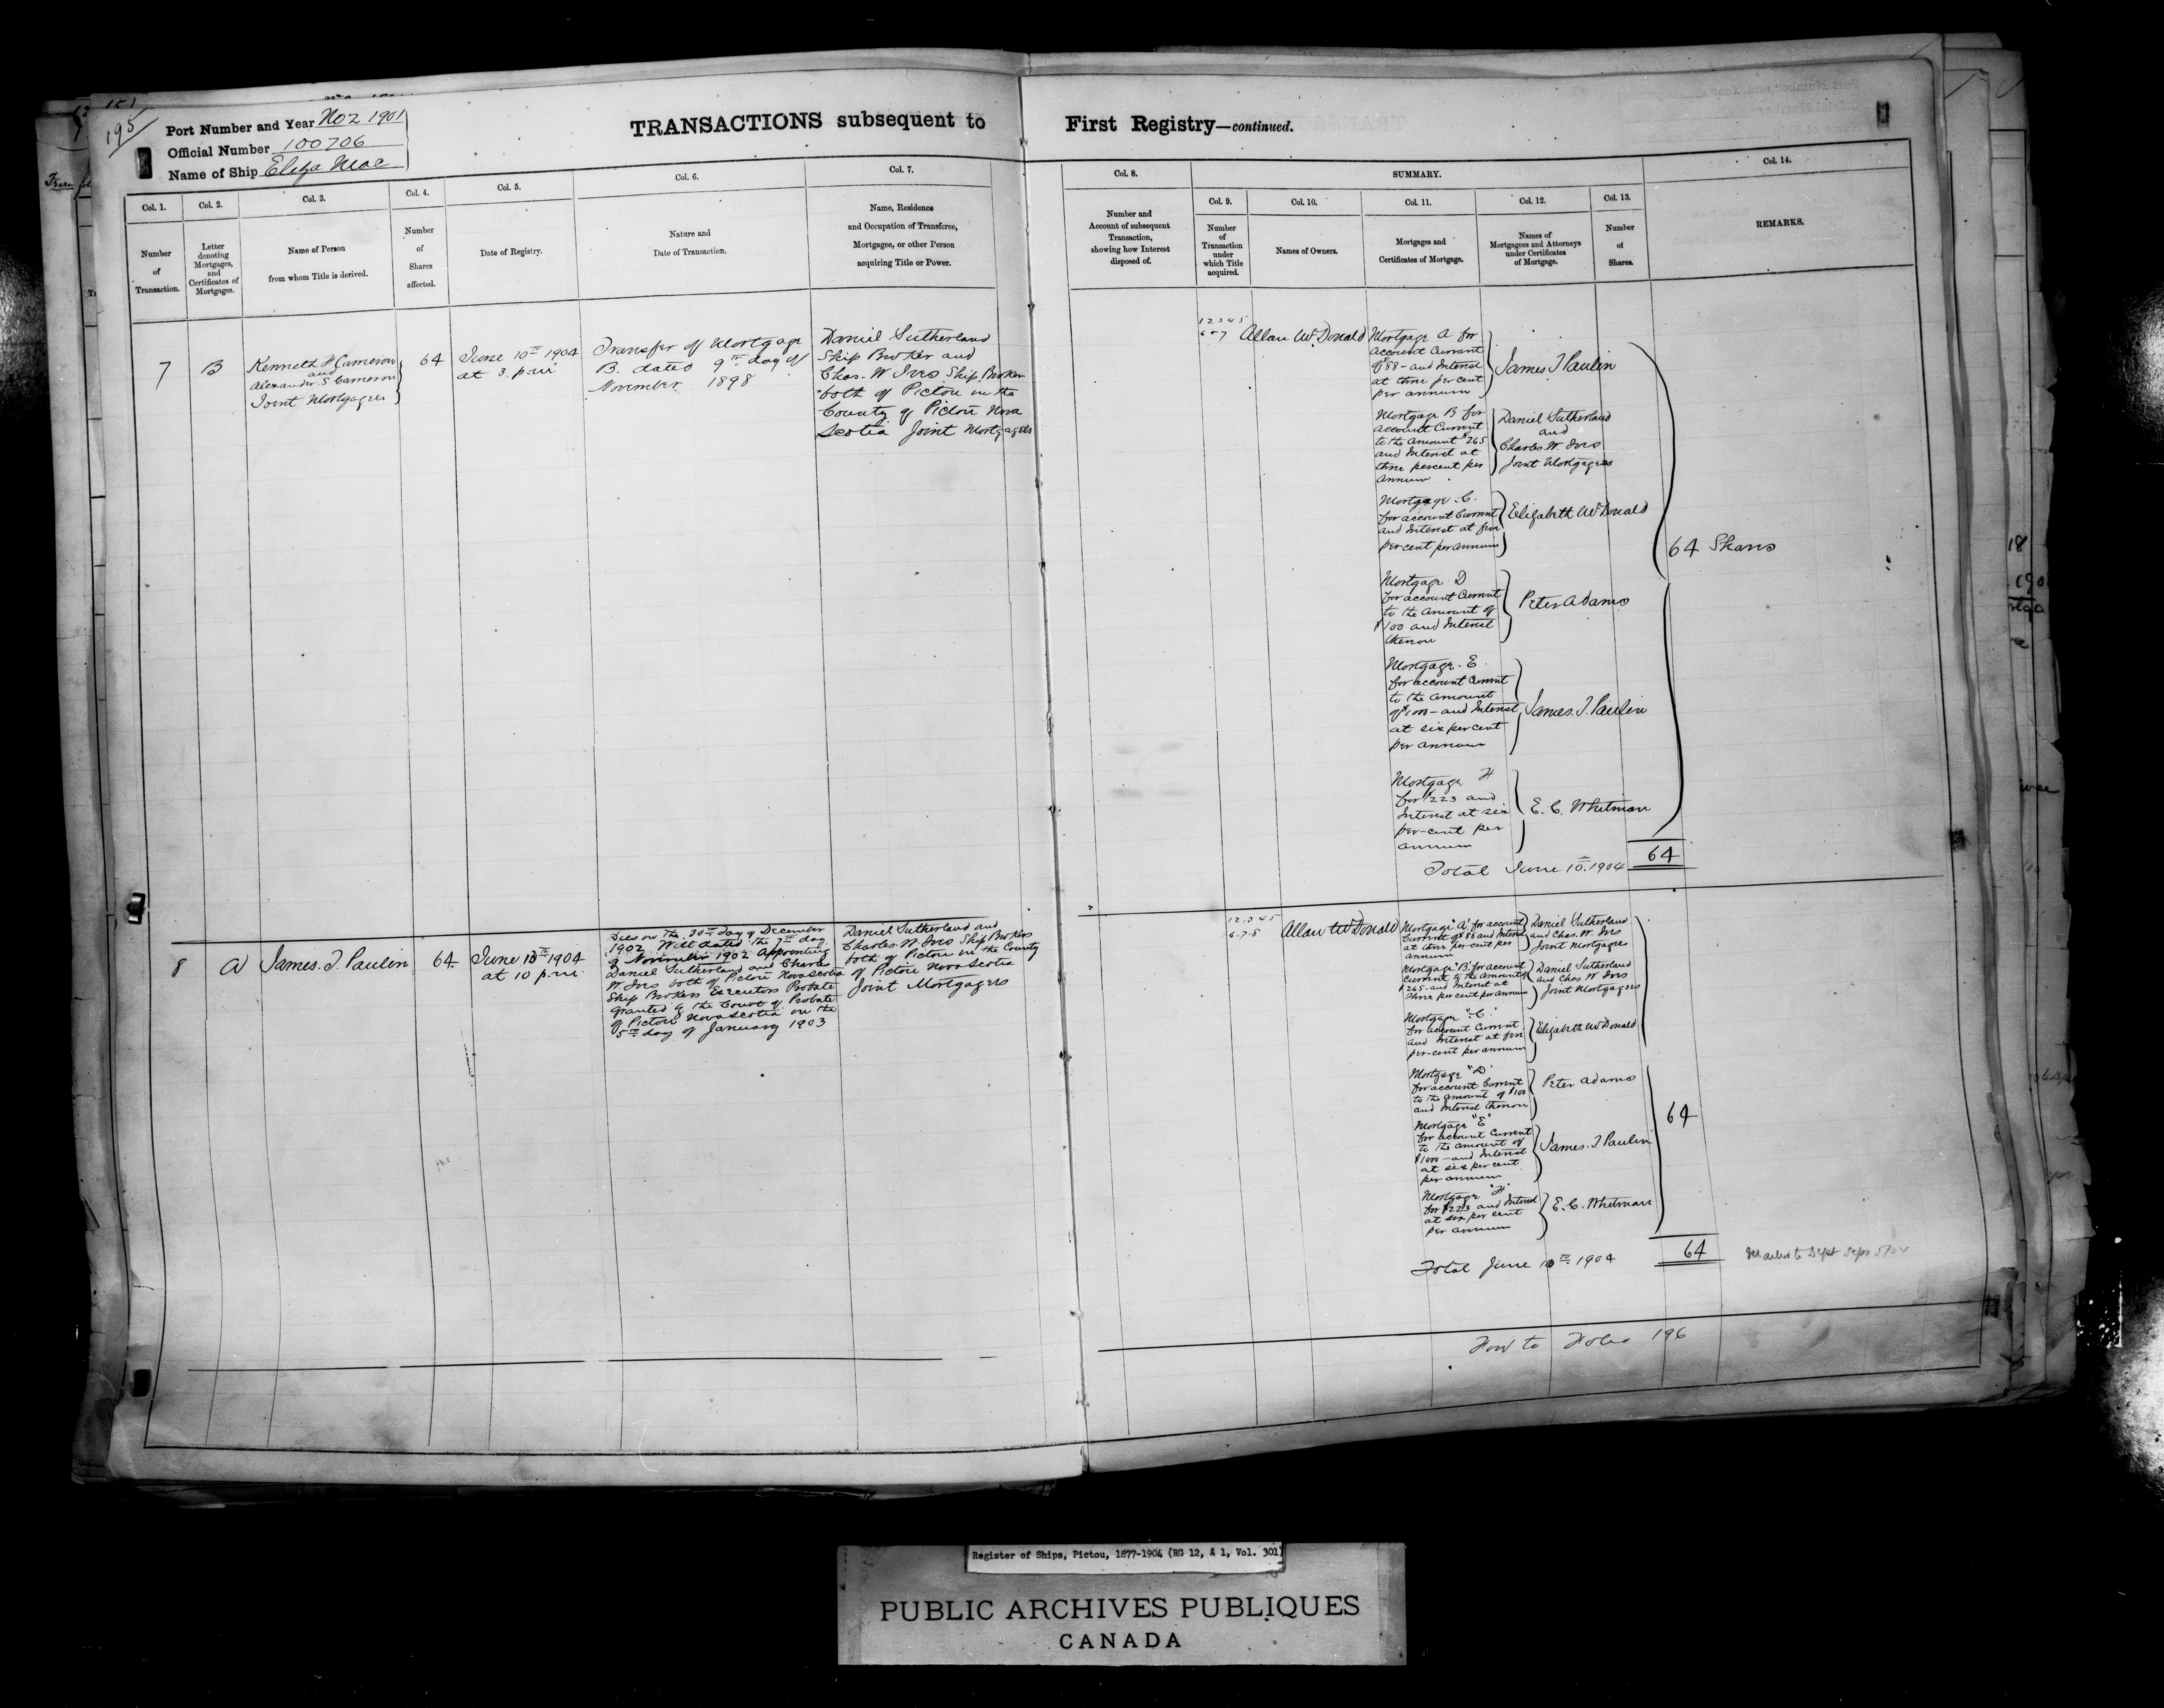 195
Port Number and Year No 2 1901
Official Number 100706
Name of Ship Eliza Mac
TRANSACTIONS subsequent to First Registry—continued.
Col. 1.
Number
of
Transaction.
Col. 2.
Letter
denoting
Mortgages,
and
Certificates of
Mortgages.
Col. 3.
Name of Person
from whom Title is derived.
Col. 4.
Number
of
Shares
affected.
Col. 5.
Date of Registry.
Col. 6.
Nature and
Date of Transaction.
Col. 7.
Name, Residence
and Occupation of Transferee,
Mortgagee, or other Person
acquiring Title or Power.
Col. 8.
Number and
Account of subsequent
Transaction,
showing how Interest
disposed of.
SUMMARY.
Col. 9.
Number
of
Transaction
under
which Title
acquired.
Col. 10.
Names of Owners.
Col. 11.
Mortgages and
Certificates of Mortgage.
Col. 12.
Names of
Mortgagees and Attorneys
under Certificates
of Mortgage.
Col. 13.
Number
of
Shares.
Col. 14.
REMARKS.
7
B
Kenneth H Cameron
and
Alexander S Cameron
Joint Mortgagees
64
June 10th 1904
at 3 p.m.
Transfer of Mortgage
B. dated 9th day of
November 1898
Daniel Sutherland
Ship Broker and
Chas. W Ives Ship Broker
both of Pictou in the
County of Pictou Nova
Scotia Joint Mortgagees
1 2 3 4 5
6 & 7
Allan McDonald
Mortgage A for
Account Current
of $88 - and Interest
at three per cent
per annum
James T Paulin
Mortgage B for
Account Current
to the Amount $265
and Interest at
three percent per
annum.
Daniel Sutherland
and
Charles W. Ives
Joint Mortgagees
Mortgage C.
for account Current
and Interest at five
per cent per annum
Elizabeth McDonald
64 Shares
Mortgage D
for account Current
to the Amount of
$100 and Interest
thereon
Peter Adams
Mortgage E.
for account Current
to the amount
of $1000 - and Interest
at six per cent
per annum
James. T. Paulin
Mortgage F
for $223 and
Interest at six
per-cent per
annum
E. C. Whitman
Total June 10th 1904 64
8
A
James. T. Paulin
64
June 10th 1904
at 10 p.m.
Dies on the 30th day of December
1902 Will dated the 7th day
of November 1902 Appointing
Daniel Sutherland and Charles
W Ives both of Pictou Nova Scotia
Ship Brokers Executors Probate
granted by the Court of Probate
of Pictou Nova Scotia on the
5th day of January 1903
Daniel Sutherland and
Charles. W. Ives Ship Brokers
both of Pictou in the County
of Pictou Nova Scotia
Joint Mortgagees
1 2 3 4 5
6. 7. 8
Allan McDonald
Mortgage "A" for account
Current of $88 and Interest
at three per cent per
annum
Daniel Sutherland
and Chas. W. Ives
Joint Mortgagees
Mortgage "B" for account
Current to the amount of
$265 - and Interest at
three per cent per annum
Daniel Sutherland
and Chas W Ives
Joint Mortgagees
Mortgage "C."
for account Current
and Interest at five
per-cent per annum
Elizabeth McDonald
Mortgage "D"
for account Current
to the amount of $100
and Interest thereon
Peter Adams
64
Mortgage "E"
for account Current
to the amount of
$1000 - and Interest
at six per cent
per annum
James. T Paulin
Mortgage "F"
for $223 and Interest
at six per cent
per annum
E. C. Whitman
Total June 10th 1904 64
to Dept Sept 5/04
Forwd to Folio 196
Register of Ships, Pictou, 1877-1904 (RG 12, A 1, Vol. 301)
PUBLIC ARCHIVES PUBLIQUES
CANADA